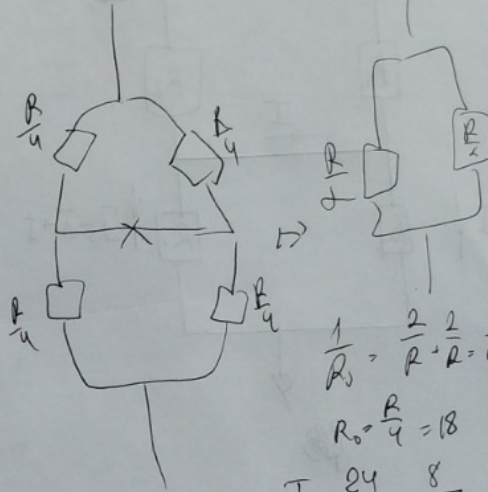 R/4
R/4
R/4
R/4
R/2
R/2
1/R₀ = 2/R + 2/R =
R₀ = R/4 = 18
I 24 8